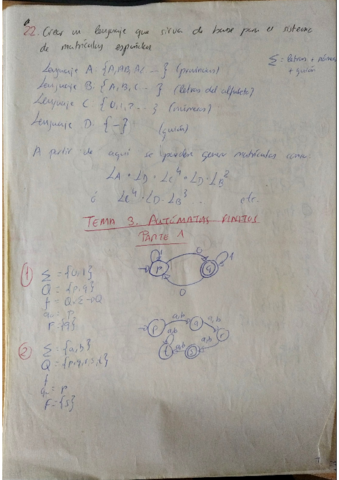 22. Crear un lenguaje que sirva de base para el sistema
de matrículas españolas
Σ = letras + números
+ guión
Lenguaje A {A, AB, AC ...} (provincias)
Lenguaje B {A, B, C ...} (letras del alfabeto)
Lenguaje C {0, 1, 2, ...} (números)
Lenguaje D {-} (guión)
A partir de aquí se pueden generar matrículas como
L_A · L_D · L_C^4 · L_D · L_B^2
ó L_C^4 · L_D · L_B^3 , etc.
TEMA 3. AUTÓMATAS FINITOS
PARTE 1
1
Σ = {0,1}
Q = {p, q}
f = QxΣ→Q
q₀ = p
F = {q}
p
q
1
0
1
0
2
Σ = {a,b}
f
q₀ = p
F = {s}
p
q
r
s
a,b
a,b